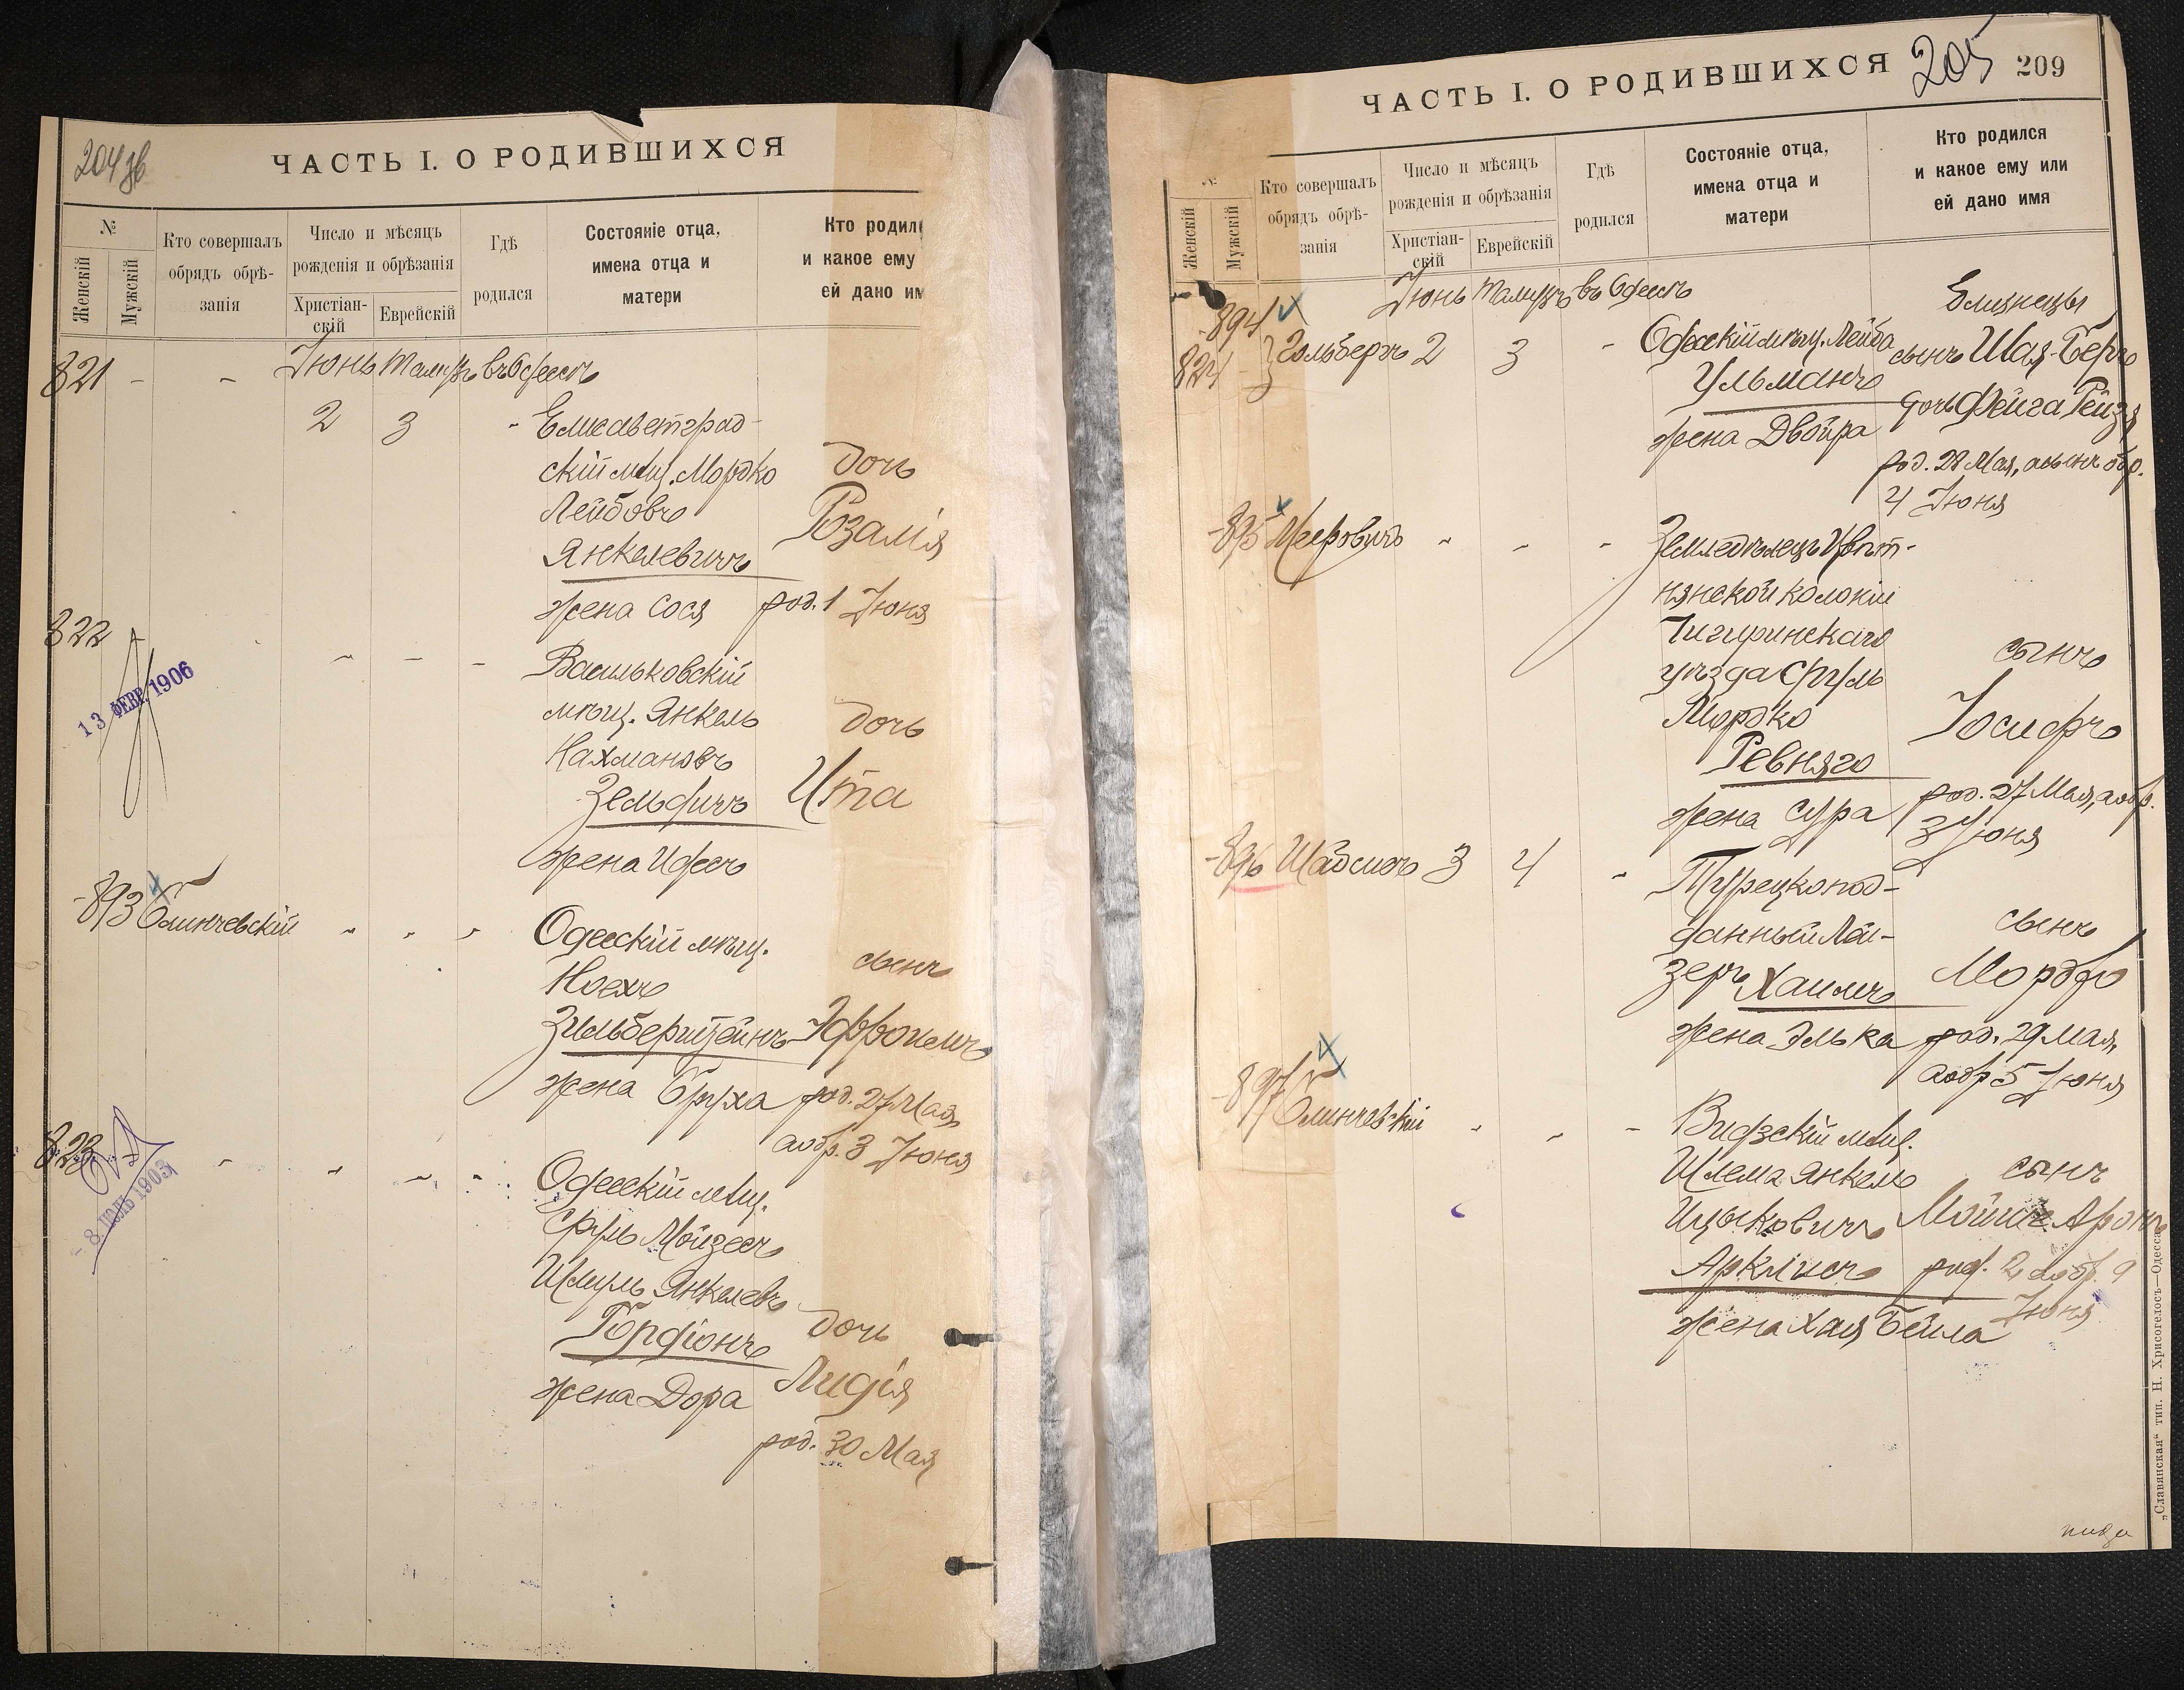 204 об
ЧАСТЬ I. О РОДИВШИХСЯ
№
Женскій
Мужскій
Кто совершалъ
обрядъ обрѣ-
занія
Число и мѣсяцъ
рожденія и обрѣзанія
Христіан-
скій
Еврейскій
Гдѣ
родился
Состояніе отца,
имена отца и
матери
Кто родил
и какое ему
ей дано им
821 - - Іюнь Тамузъ въ Одессѣ
2 3 - Елисаветград-
скій мѣщ. Мордко
дочь
Лейбовъ
Розалія
Янкелевичъ
жена Сося
род. 1 Іюня
822
13 ФЕВР. 1906
Васильковскій
мѣщ. Янкель
дочь
Нахмановъ
Зельфичъ
Ита
жена Идесъ
893 Олинчевскій
Одесскій мѣщ.
Ноехъ
сынъ
Зильберштейнъ
Эфроимъ
жена Бруха
род. 27 Мая,
а обр. 3 Іюня
823
- 8 ІЮЛЬ 1903
Одесскій мѣщ.
Сруль Мойзесъ
Шмуль Янкелевъ
Гордіонъ
дочь
жена Дора
Лидія
род. 30 Мая
ЧАСТЬ I. О РОДИВШИХСЯ
205
209
№
Женскій
Мужскій
Кто совершалъ
обрядъ обрѣ-
занія
Число и мѣсяцъ
рожденія и обрѣзанія
Христіан-
скій
Еврейскій
Гдѣ
родился
Состояніе отца,
имена отца и
матери
Кто родился
и какое ему или
ей дано имя
Іюнь Тамузъ въ Одессѣ
Близнецы
894
824 Гольбергъ 2 3 - Одесскій мѣщ. Лейба
сынъ Шая-Беръ
Ульманъ
дочь Фейга Рейзя
жена Двойра
род. 28 Мая, а сынъ обр.
4 Іюня
895 Меєровичъ
Земледѣлецъ Квит-
нянской колоніи
Чигиринскаго
уѣзда Сруль
сынъ
Мордко
Іосифъ
Ревняго
жена Сура
род. 27 Мая, а обр.
3 Іюня
896 Шадсисъ 3 4 - Турецкопод-
данный Лей-
сынъ
зеръ Хаимъ
Мордко
жена Элька
род. 29 Мая,
а обр 5 Іюня
897 Олинчевскій
Видзскій мѣщ.
Шлема Янкель
сынъ
Ицыковичъ
Мойше Аронъ
Арклисъ
род. 2, а обр. 9
Іюня
жена Хая Бейла
„Славянская“ тип. Н. Хрисогелосъ—Одесса.